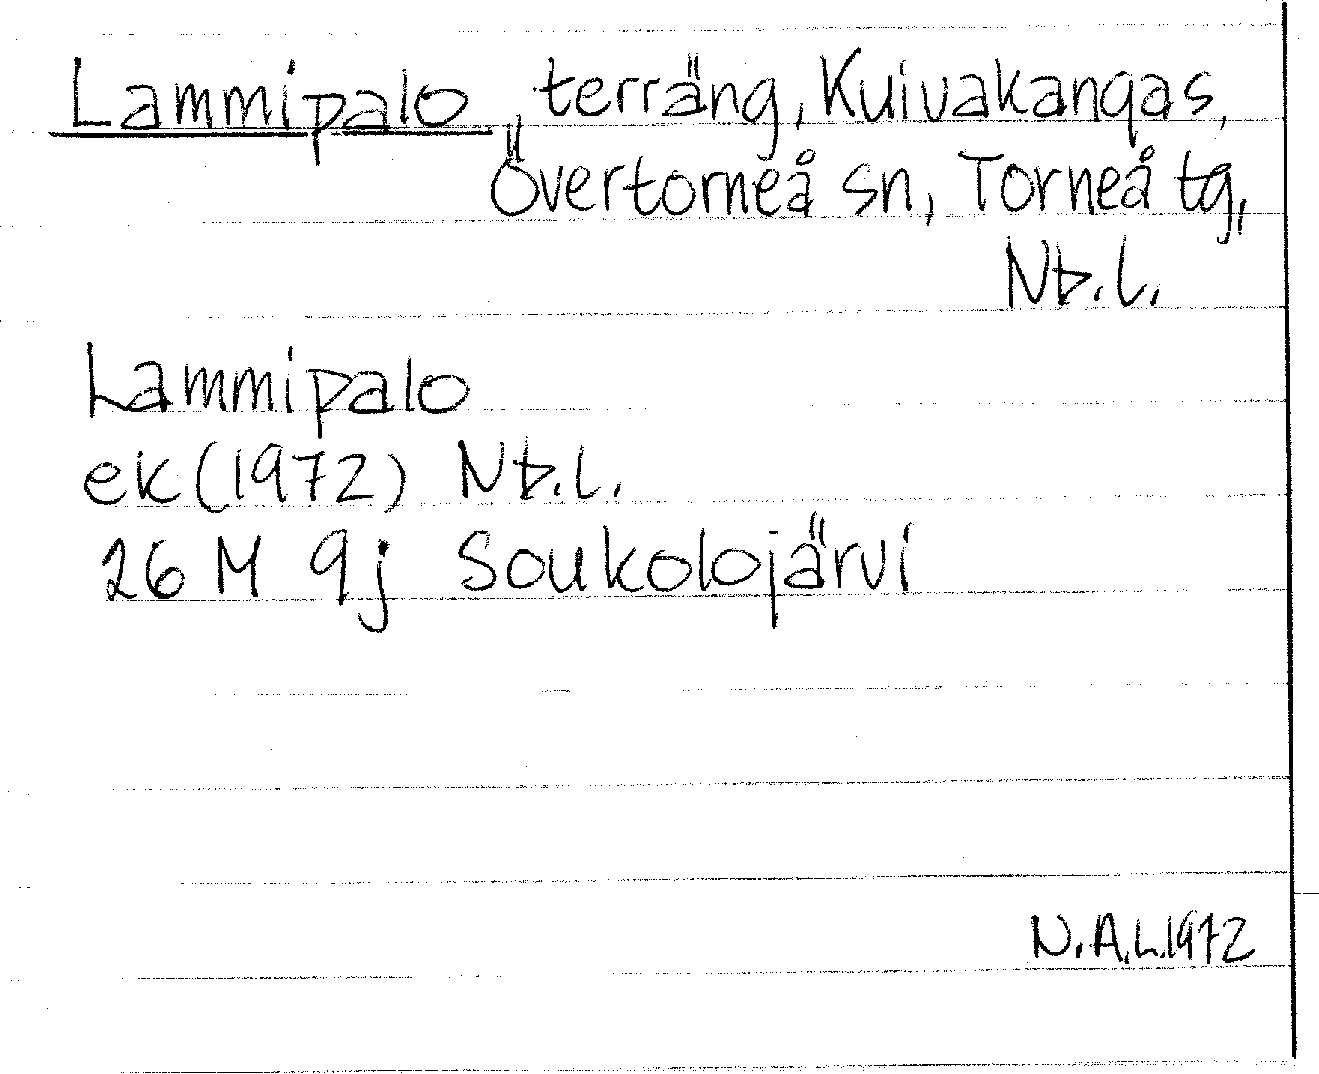 Lammipalo, terräng, Kuivakangas,
Övertorneå sn, Torneå tg,
Nb.l.
Lammipalo
ek (1972) Nb.l.
26 M 9j Soukolojärvi
N.A.L.1972